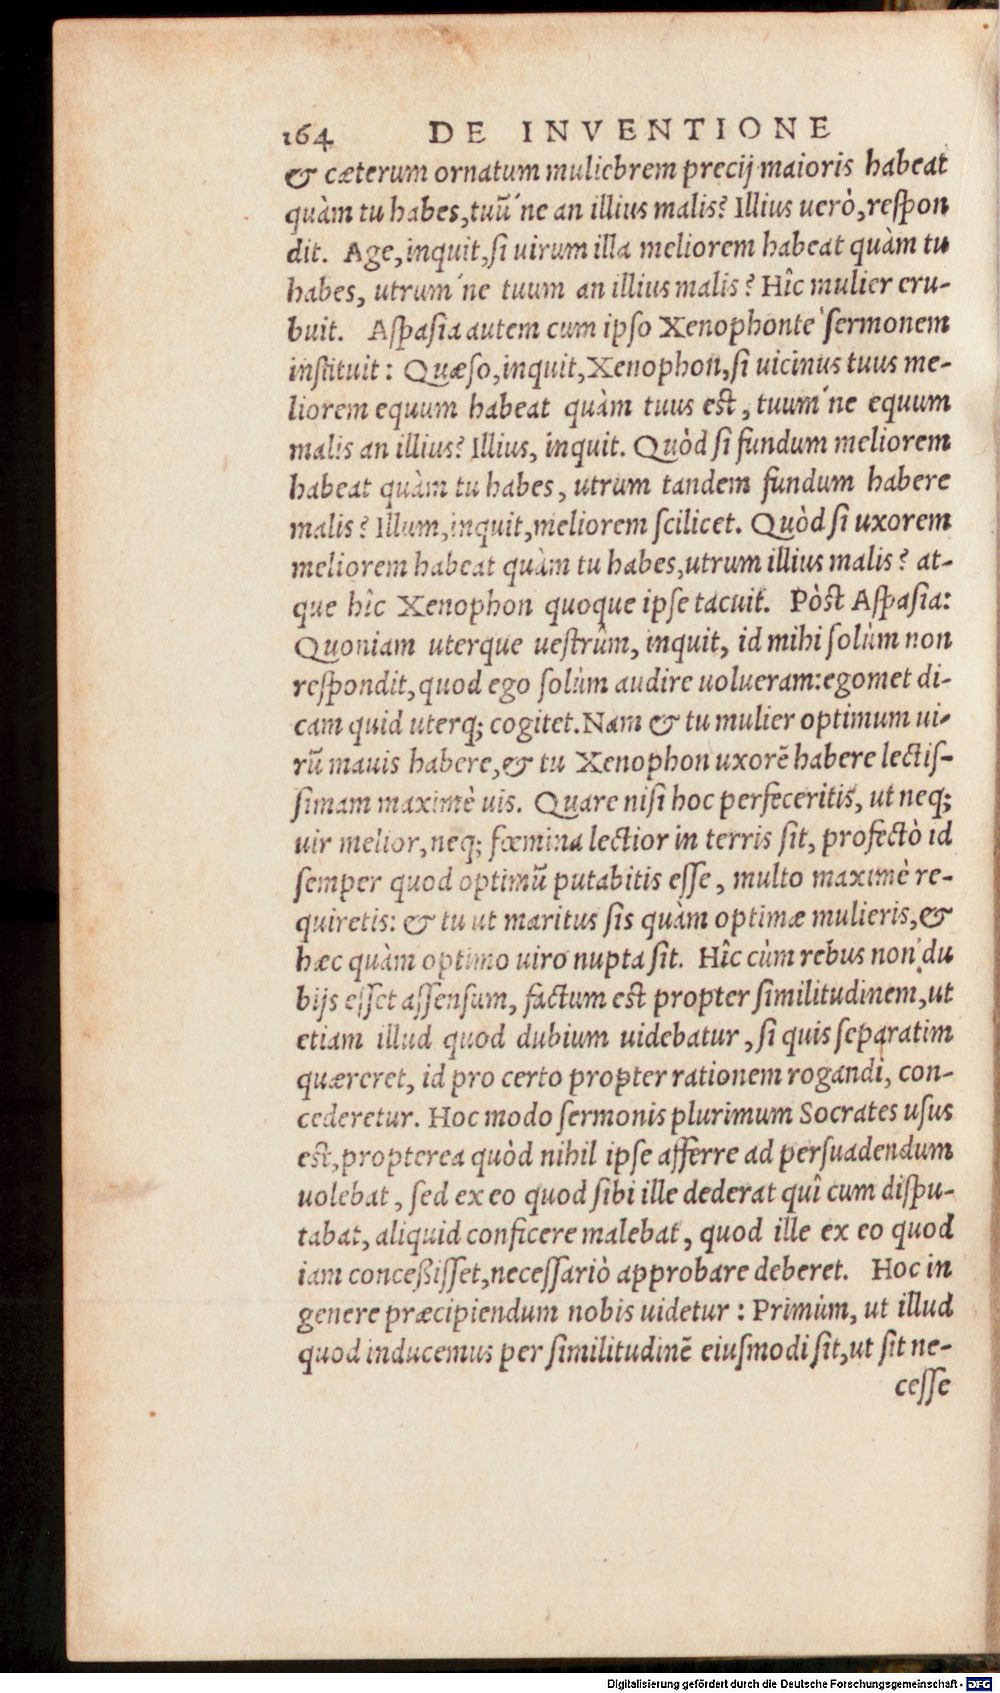 164 DE INVENTIONE
& cæterum ornatum muliebrem precij maioris habeat
quàm tu habes, tuũ ́ne an illius malis? Illius uerò, respon
dit. Age, inquit, si uirum illa meliorem habeat quàm tu
habes, utrum ́ne tuum an illius malis? Hîc mulier eru-
buit. Aspasia autem cum ipso Xenophonte sermonem
instituit: Quæso, inquit, Xenophon, si uicinus tuus me-
liorem equum habeat quàm tuus est, tuum ́ne equum
malis an illius? Illius, inquit. Quòd si fundum meliorem
habeat quàm tu habes, utrum tandem fundum habere
malis? Illum, inquit, meliorem scilicet. Quòd si uxorem
meliorem habeat quàm tu habes, utrum illius malis? at-
que hîc Xenophon quoque ipse tacuit. Pòst Aspasia:
Quoniam uterque uestrûm, inquit, id mihi solùm non
respondit, quod ego solùm audire uolueram: egomet di-
cam quid uterq; cogitet. Nam & tu mulier optimum ui-
rũ mauis habere, & tu Xenophon uxorẽ habere lectis-
simam maximè uis. Quare nisi hoc perfeceritis, ut neq;
uir melior, neq; fœmina lectior in terris sit, profectò id
semper quod optimũ putabitis esse, multo maximè re-
quiretis: & tu ut maritus sis quàm optimæ mulieris, &
hæc quàm optimo uiro nupta sit. Hîc cùm rebus non du
bijs esset assensum, factum est propter similitudinem, ut
etiam illud quod dubium uidebatur, si quis separatim
quæreret, id pro certo propter rationem rogandi, con-
cederetur. Hoc modo sermonis plurimum Socrates usus
est, propterea quòd nihil ipse afferre ad persuadendum
uolebat, sed ex eo quod sibi ille dederat quî cum dispu-
tabat, aliquid conficere malebat, quod ille ex eo quod
iam conceßisset, necessariò approbare deberet. Hoc in
genere præcipiendum nobis uidetur: Primùm, ut illud
quod inducemus per similitudinẽ eiusmodi sit, ut sit ne-
cesse
Digitalisierung gefördert durch die Deutsche Forschungsgemeinschaft - DFG